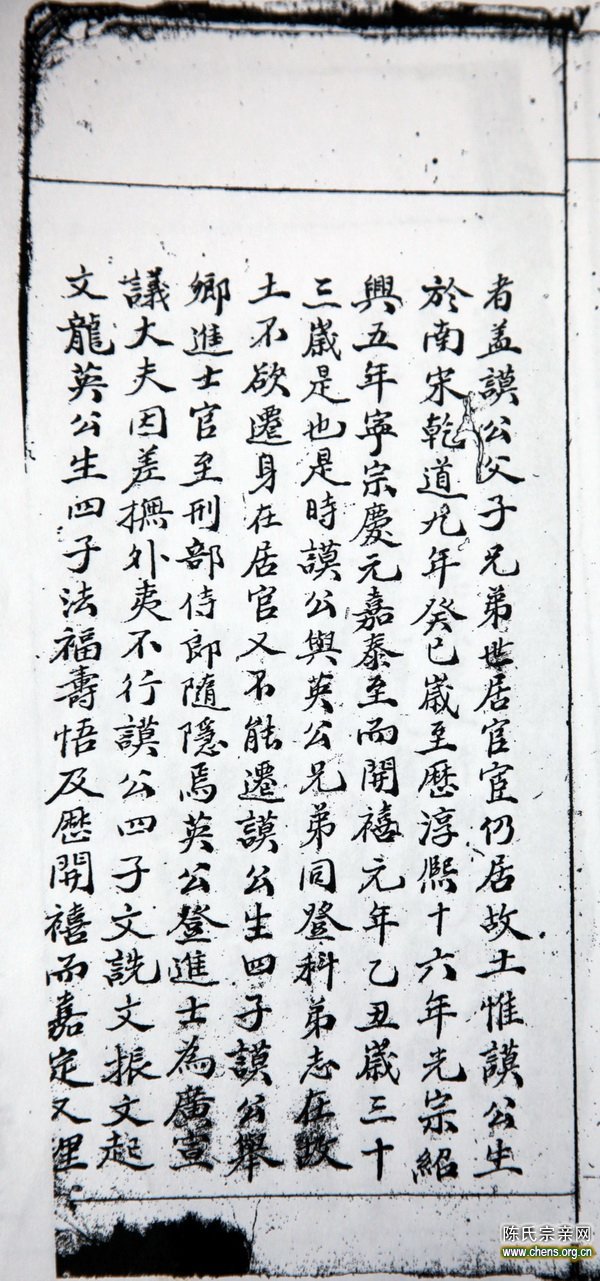 者盖謨公父子兄弟世居官宦仍居故土惟謨公生
於南宋乾道九年癸巳歲至歷淳熙十六年光宗紹
興五年寧宗慶元嘉泰至而開禧元年乙丑歲三十
三歲是也是時謨公與英公兄弟同登科弟志在故
土不欲遷身在居官又不能遷謨公生四子謨公舉
鄉進士官至刑部侍郎隨隱焉英公登進士為廣宣
議大夫因差撫外夷不行謨公四子文詵文振文起
文龍英公生四子法福壽悟及歷開禧而嘉定又理
陈氏宗亲网
www.chens.org.cn